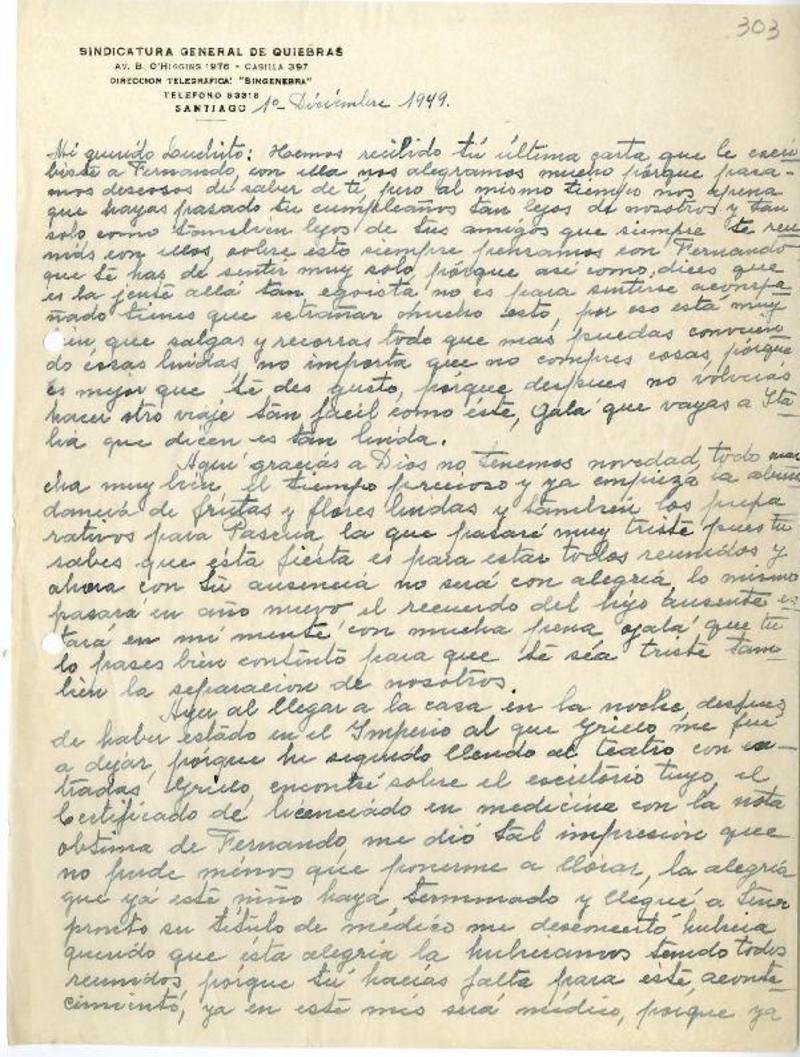 303
SINDICATURA GENERAL DE QUIEBRAS
AV. B. O'HIGGINS 1976 - CASILLA 397
DIRECCION TELEGRAFICA: "SINGENEBRA"
TELEFONO 83318
SANTIAGO 1º Diciembre 1949.
Mi querido Lauchito: Hemos recibido tú última carta que le escri
biste a Fernando, con ella nos alegramos mucho pórque pasa-
mos deseosos de saber de ti, pero al mismo tiempo nos apena
que hayas pasado tu cumpleaños tan lejos de nosotros y tan
solo como tambien lejos de tus amigos que siempre te reu
nias con ellos, sobre esto siempre pensamos con Fernando
que té has de sentir muy solo pórque así como dices que
es la jente allá tan egoista no es para sentirse acompa
ñado tienes que estrañar mucho ésto, por eso está muy
bien que salgas y recorras todo que mas puedas conocien
do cosas lindas, no importa que no compres cosas, pórque
es mejor que té des gusto, porque despues no volveras
hacer otro viaje tan fácil como éste, ojalá que vayas a Ita
lia que dicen es tan linda.
Aquí gracias a Dios no tenemos novedad, todo mar
cha muy bien el tiempo precioso y ya empieza la abun
dancia de frutas y flores lindas y tambien los prepa
rativos para Pascua la que pasaré muy triste pues tu
sabes que ésta fiesta es para estar todos reunidos y
ahora con tú ausencia no será con alegria, lo mismo
pasará en año nuevo el recuerdo del hijo ausente es
tará en mi mente con mucha pena, ojalá que tu
lo pases bien contento para que té séa triste tam-
bien la separacion de nosotros.
Ayer al llegar a la casa en la noche, despues
de haber estado en el Imperio al que Grielo me fué
a dejar, pórque he seguido llendo al teatro con en-
tradas Grielo, encontré sobre el escritorio tuyo, el
Certificado de licenciado en medicina con la nota
obtima de Fernando, me dió tal impresión que
no pude ménos que ponerme a llorar, la alegria
que yá esté niño haya terminado y llegué a tener
pronto su titulo de médico me desconcertó hubiera
querido que ésta alegria la huberamos tenido todos
reunidos, pórque tú hacías falta para esté aconte
cimiento, ya en esté mes será médico, pórque ya